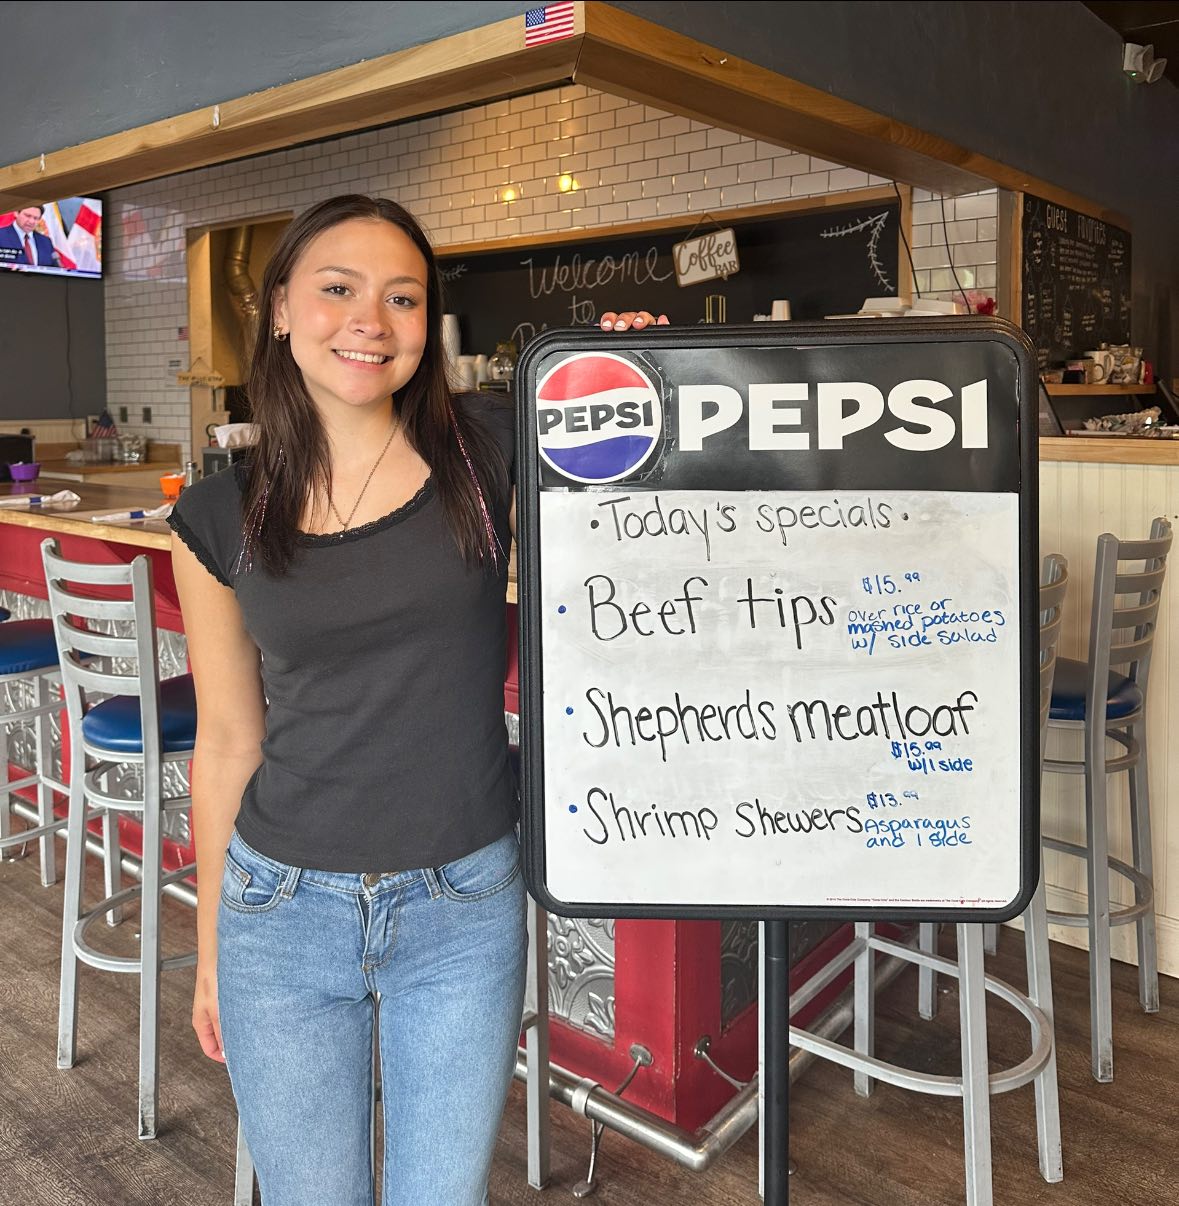 Welcome
to
Coffee
BAR
Guest Favorites
PEPSI PEPSI
• Today's specials •
• Beef tips $15.99
over rice or
mashed potatoes
w/ side salad
• Shepherds meatloaf
$15.99
w/1 side
• Shrimp skewers $13.99
Asparagus
and 1 side